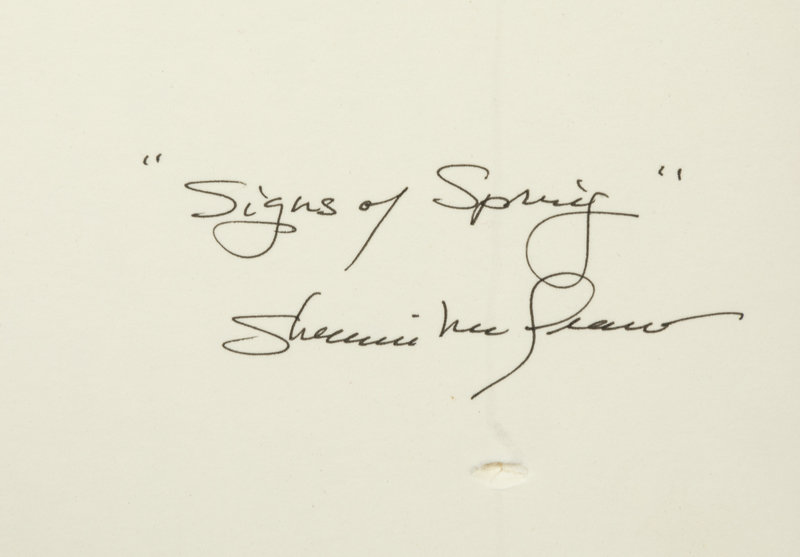 "Signs of Spring"
Sherrie McGraw